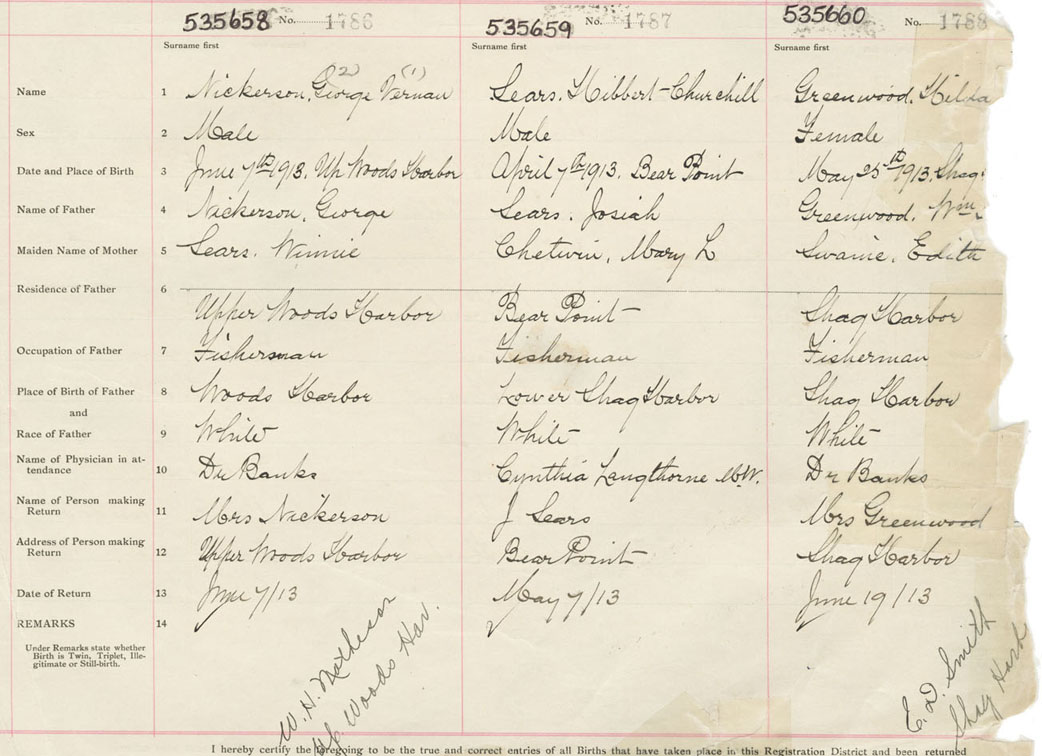 535658 No. 1786 535659 No. 1787 535660 No. 1788
Surname first Surname first Surname first
(2) (1)
Name 1 Nickerson, George Vernan Sears. Hibbert-Churchill Greenwood. Hilda
Sex 2 Male Male Female
Date and Place of Birth 3 June 7th 1913. Up Woods Harbor April 7th 1913. Bear Point May 25th 1913. Shag
Name of Father 4 Nickerson, George Sears. Josiah Greenwood. Wm
Maiden Name of Mother 5 Sears. Winnie Chetwin, Mary L Swaine, Edith
Residence of Father 6
Upper Woods Harbor Bear Point Shag Harbor
Occupation of Father 7 Fisherman Fisherman Fisherman
Place of Birth of Father 8 Woods Harbor Lower Shag Harbor Shag Harbor
and
Race of Father 9 White White White
Name of Physician in at-
tendance 10 Dr Banks Cynthia Langthorne M.W. Dr Banks
Name of Person making
Return 11 Mrs Nickerson J Sears Mrs Greenwood
Address of Person making
Return 12 Upper Woods Harbor Bear Point Shag Harbor
Date of Return 13 June 7/13 May 7/13 June 19/13
REMARKS 14
Under Remarks state whether
Birth is Twin, Triplet, Ille-
gitimate or Still-birth.
W. H. Matheson
Woods Har.
E. D. Smith
Shag Harb
I hereby certify the foregoing to be the true and correct entries of all Births that have taken place in this Registration District and been returned